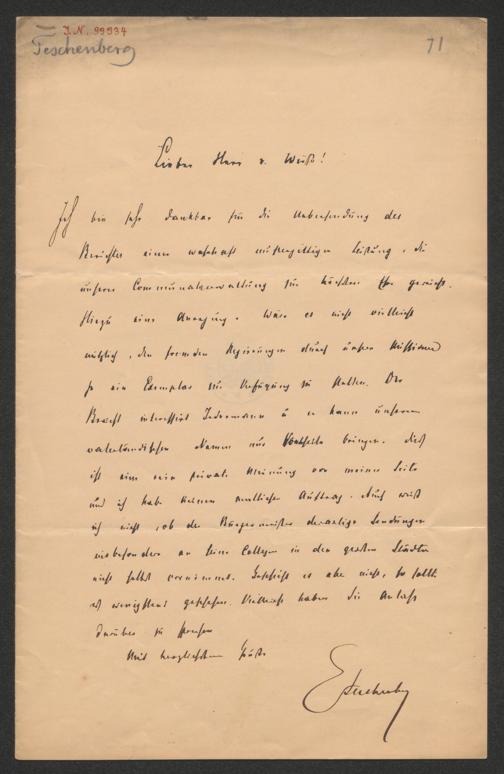 I.N. 99934
Teschenberg
71
Lieber Herr v. Weiß!
Ich bin sehr dankbar für die Uebersendung des
Berichtes einer wahrhaft mustergiltigen Leistung, die
unserer Communalverwaltung zur höchsten Ehre gereicht.
Hiezu eine Anregung. Wäre es nicht vielleicht
nützlich, den fremden Regierungen durch unsere Missionen
je ein Exemplar zur Verfügung zu stellen. Der
Bericht interessirt Jedermann u er kann unserem
vaterländischen Namen nur Vortheile bringen. Dieß
ist eine rein private Meinung von meiner Seite
und ich habe keinen amtlichen Auftrag. Auch weiß
ich nicht, ob der Bürgermeister derartige Sendungen
insbesondere an seine Collegen in den großen Städten
nicht selbst vornimmt. Geschieht es aber nicht, so sollte
es wenigstens geschehen. Vielleicht haben Sie Anlaß
darüber zu sprechen
Mit herzlichsten Grüße
ETeschenberg